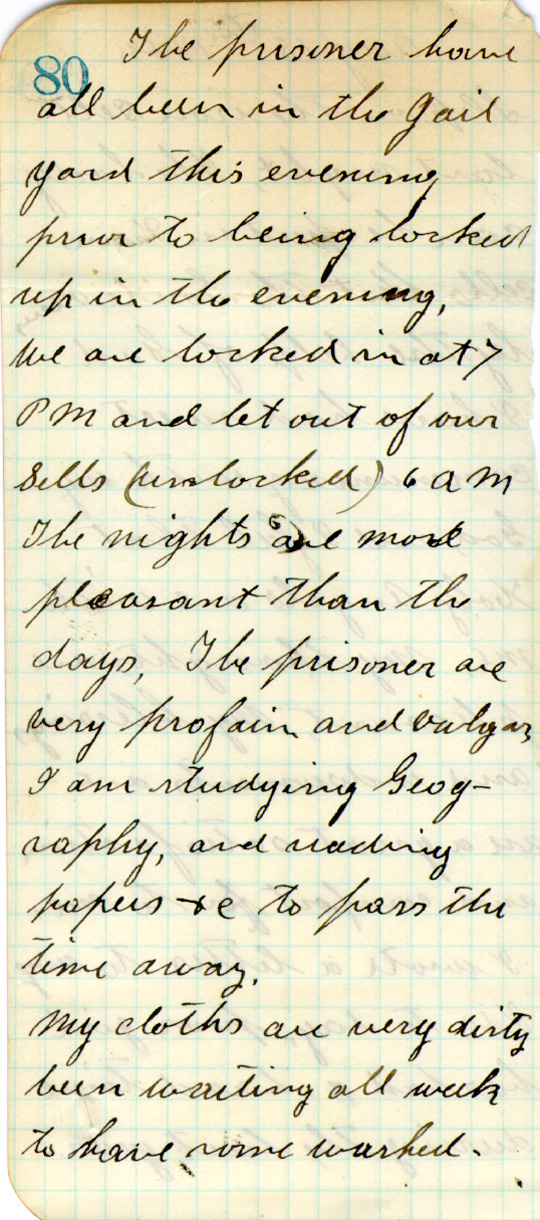 80
The prisoner have
all been in the Gail
yard this evening
prior to being locked
up in the evening,
We are locked in at 7
PM and let out of our
Sells (unlocked) 6 a m
The nights are more
pleasant than the
days, The prisoner are
very profain and vulgar,
I am studying Geog-
raphy, and reading
papers &c to pass the
time away.
My cloths are very dirty
been waiting all week
to have some washed.